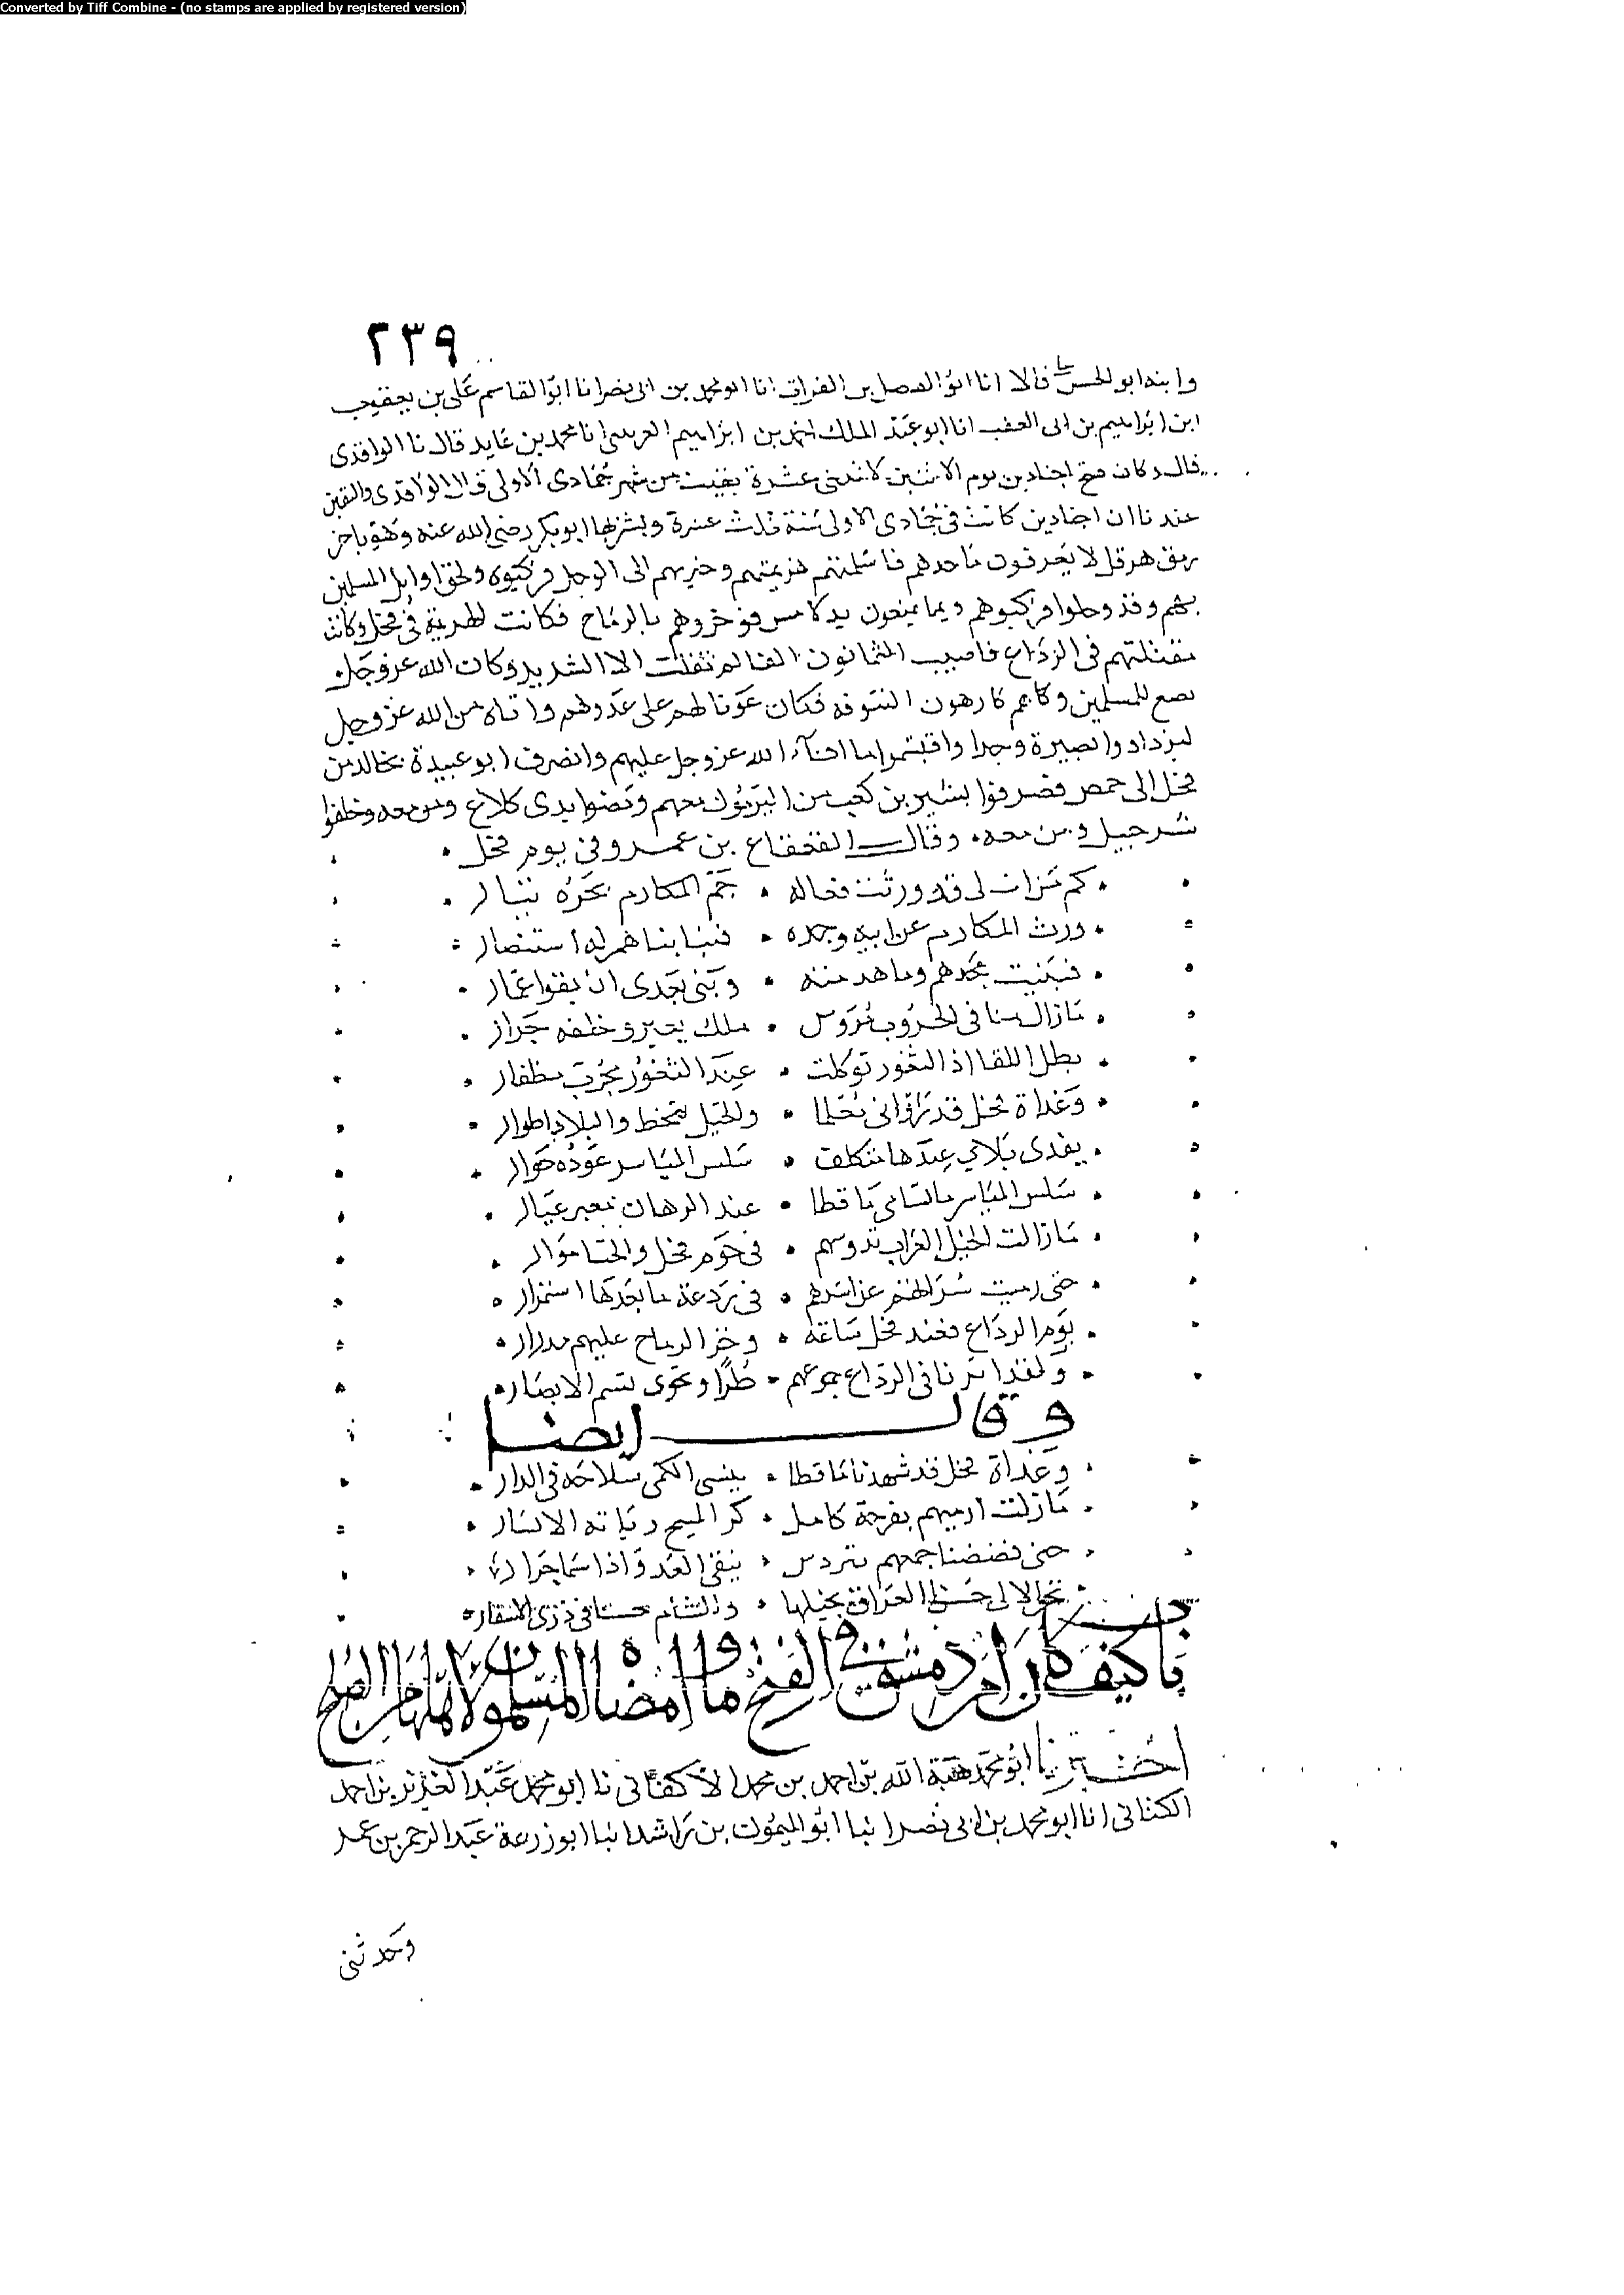 Converted by Tiff Combine - (no stamps are applied by registered version)
٢٣٩
وابنه ابو الحسن قالا انا ابو الفضل بن الفرات انا ابو محمد بن ابى نصر انا ابو القاسم على بن يعقوب
ابن ابراهيم بن ابى العقب انا ابو عبد الملك احمد بن ابراهيم القرشى انا محمد بن عايد قال نا الواقدى
قال وكان فتح اجنادين يوم الاثنين لاثنتى عشرة بقيت من شهر جمادى الاولى قال الواقدى واليقين
عندنا ان اجنادين كانت فى جمادى الاولى سنة ثلث عشرة وبشر بها ابو بكر رضى الله عنه وهو باخر
رمق هرقل لا يعرفون ماخدهم فاسلمتهم هزيمتهم وحيرتهم الى الوحل فركبوه ولحق اوايل المسلمين
بهم وقد وحلوا فركبوهم وما يمنعون يد لامس فوخزوهم بالرماح فكانت الهزيمة فى فحل وكانت
مقتلتهم فى الرداغ فاصيب الثمانون الفا لم تفلت الا الشريد وكان الله عز وجل
يصنع للمسلمين وكانهم كارهون البثوق فكان عونا لهم على عدوهم واناة من الله عز وجل
ليزدادوا بصيرة وجدا واقتسموا ما افاء الله عز وجل عليهم وانصرف ابو عبيدة بخالد من
فحل الى حمص فصرفوا بشير بن كعب من اليرموك معهم ومضوا بذى كلاع ومن معه وخلفوا
شرحبيل ومن معه وقال القعقاع بن عمرو فى يوم فحل
كم من اب لى قد ورثت فعاله جم المكارم بحره تيار
ورث المكارم عن ابيه وجده فبنا بناهم له استبصار
فبنيت مجدهم وما هدمته وبنى بعدى ان بقوا عمار
مازال منا فى الحروب مروس ملك يغير وخلفه جرار
بطل اللقا اذا الثغور توكلت عند الثغور مجرب مظفار
وغداة فحل قد راوانى معلما والخيل تنحط والبلا اطوار
يفدى بلائى عندها متكلف سلس المياسر عوده خوار
سلس المياسر ما تسامى ماقطا عند الرهان معير عيار
مازالت الخيل العراب تدوسهم فى حوم فحل والهبا موار
حتى رمين سراتهم عن اسرهم فى ردغة ما بعدها استمرار
يوم الرداغ فعند فحل ساعة وخز الرماح عليهم مدرار
ولقد ابرنا فى الرداغ جموعهم طرا ونحوى تشم الابصار
وقال ايضا
وغداة فحل قد شهدنا ماقطا ينسى الكمى سلاحه فى الدار
مازلت ارميهم بقرحة كامل كر المبيح رياثة الابسار
حتى فضضنا جمعهم بتردس ينفى العدو اذا سما جرار
نحن الالى جسوا العراق بخيلها والشام جسا فى ذرى الاسفار
باب كيف كان امر دمشق فى الفتح وما امضاه المسلمون لاهلها من الصلح
اخبرنا ابو محمد هبة الله بن احمد بن محمد الاكفانى نا ابو محمد عبد العزيز بن احمد
الكنانى انا ابو محمد بن ابى نصر انبا ابو الميمون بن راشد انبا ابو زرعة عبد الرحمن بن عمر
وحدثنى